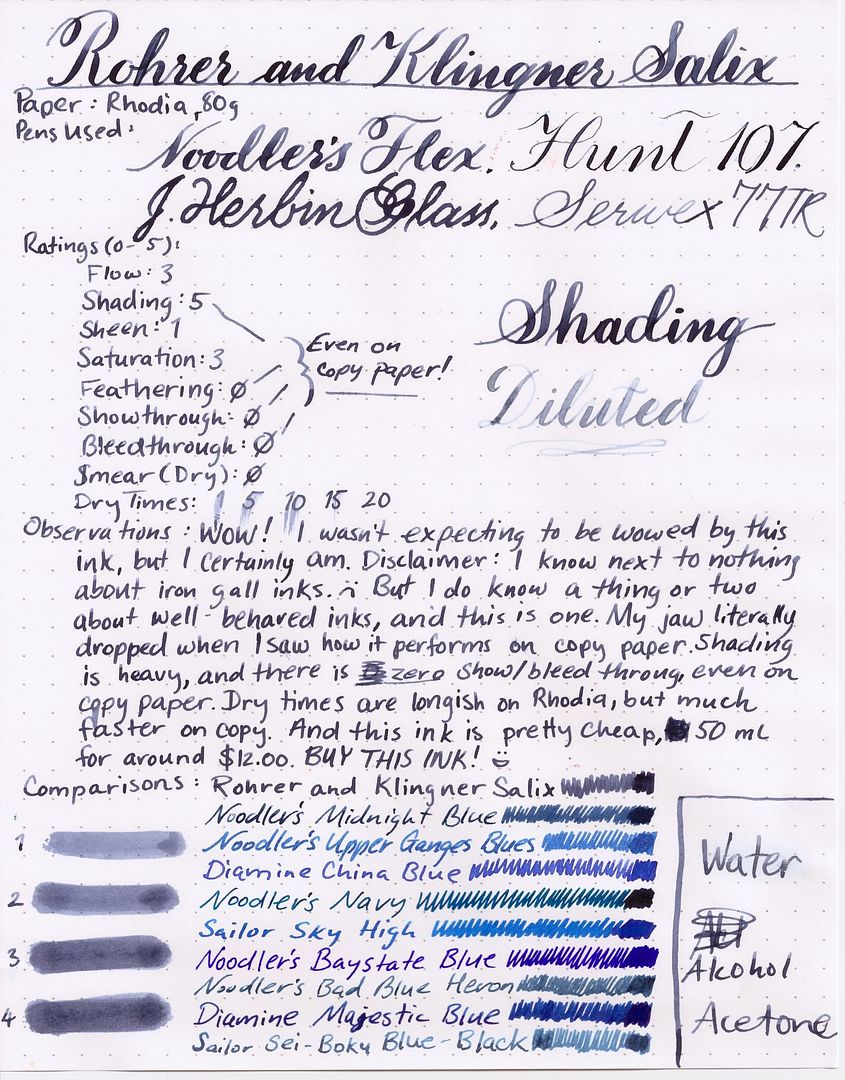 Rohrer and Klingner Salix
Paper: Rhodia, 80g
Pens Used:
Noodler's Flex. Hunt 107.
J. Herbin Glass. Serwex 77TR
Ratings (0-5):
Flow: 3
Shading: 5
Sheen: 1
Saturation: 3
Feathering: Ø
Showthrough: Ø
Bleedthrough: Ø
Smear (Dry): Ø
Dry Times: 1 5 10 15 20
Even on
copy paper!
Shading
Diluted
Observations: WOW! I wasn't expecting to be wowed by this
ink, but I certainly am. Disclaimer: I know next to nothing
about iron gall inks. But I do know a thing or two
about well-behaved inks, and this is one. My jaw literally
dropped when I saw how it performs on copy paper. Shading
is heavy, and there is zero show/bleed throug, even on
copy paper. Dry times are longish on Rhodia, but much
faster on copy. And this ink is pretty cheap, 50 mL
for around $12.00. BUY THIS INK!
Comparisons: Rohrer and Klingner Salix
Noodler's Midnight Blue
Noodler's Upper Ganges Blues
Diamine China Blue
Noodler's Navy
Sailor Sky High
Noodler's Baystate Blue
Noodler's Bad Blue Heron
Diamine Majestic Blue
Sailor Sei-Boku Blue-Black
1
2
3
4
Water
Alcohol
Acetone